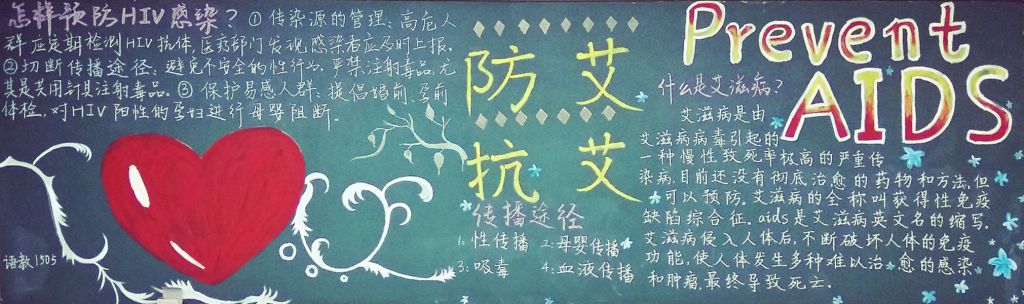 怎样预防HIV感染？①传染源的管理：高危人
群应定期检测HIV抗体，医疗部门发现感染者应及时上报。
②切断传播途径：避免不安全的性行为，严禁注射毒品，尤
其是共用针具注射毒品。③保护易感人群：提倡婚前、孕前
体检，对HIV阳性的孕妇进行母婴阻断。
语教1505
防艾
抗艾
传播途径
1:性传播 2:母婴传播
3:吸毒 4:血液传播
Prevent
AIDS
什么是艾滋病？
艾滋病是由
艾滋病病毒引起的
一种慢性致死率极高的严重传
染病，目前还没有彻底治愈的药物和方法，但
可以预防。艾滋病的全称叫获得性免疫
缺陷综合征。aids是艾滋病英文名的缩写。
艾滋病侵入人体后，不断破坏人体的免疫
功能，使人体发生多种难以治愈的感染
和肿瘤，最终导致死亡。